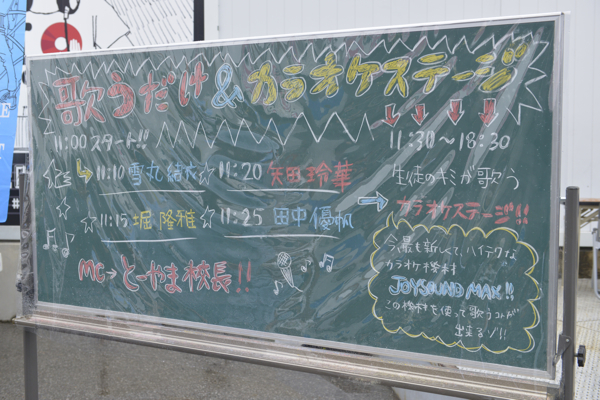 歌うだけ & カラオケステージ
11:00 スタート!!
11:10 雪丸 結衣 ☆ 11:20 矢田 玲華
☆ 11:15 堀 隆雅 ☆ 11:25 田中 優帆
MC→とーやま校長!!
11:30〜18:30
生徒のキミが歌う
カラオケステージ!!
今、最も新しくて、ハイテクな
カラオケ機材
JOYSOUND MAX!!
この機材を使って歌うコトが
出来るゾ!!